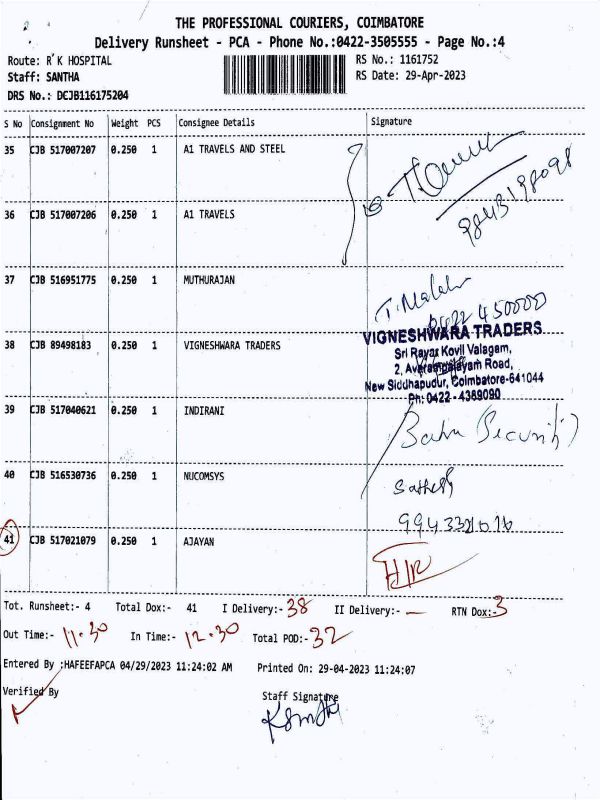 THE PROFESSIONAL COURIERS, COIMBATORE
Delivery Runsheet - PCA - Phone No.:0422-3505555 - Page No.:4
Route: R K HOSPITAL
RS No.: 1161752
Staff: SANTHA
RS Date: 29-Apr-2023
DRS No.: DCJB116175204
S No Consignment No Weight PCS Consignee Details Signature
35 CJB 517007207 0.250 1 A1 TRAVELS AND STEEL
9843198098
36 CJB 517007206 0.250 1 A1 TRAVELS
37 CJB 516951775 0.250 1 MUTHURAJAN
0422 4500000
38 CJB 89498183 0.250 1 VIGNESHWARA TRADERS
VIGNESHWARA TRADERS
Sri Rayar Kovil Valagam,
2, Avarampalayam Road,
New Siddhapudur, Coimbatore-641044
Ph: 0422 - 4389090
39 CJB 517040621 0.250 1 INDIRANI
(Security)
40 CJB 516530736 0.250 1 NUCOMSYS
Sathesh
41 CJB 517021079 0.250 1 AJAYAN
Tot. Runsheet:- 4 Total Dox:- 41 I Delivery:- 38 II Delivery:- — RTN Dox:- 3
Out Time:- 11.30 In Time:- 12.30 Total POD:- 32
Entered By :HAFEEFAPCA 04/29/2023 11:24:02 AM Printed On: 29-04-2023 11:24:07
Verified By Staff Signature